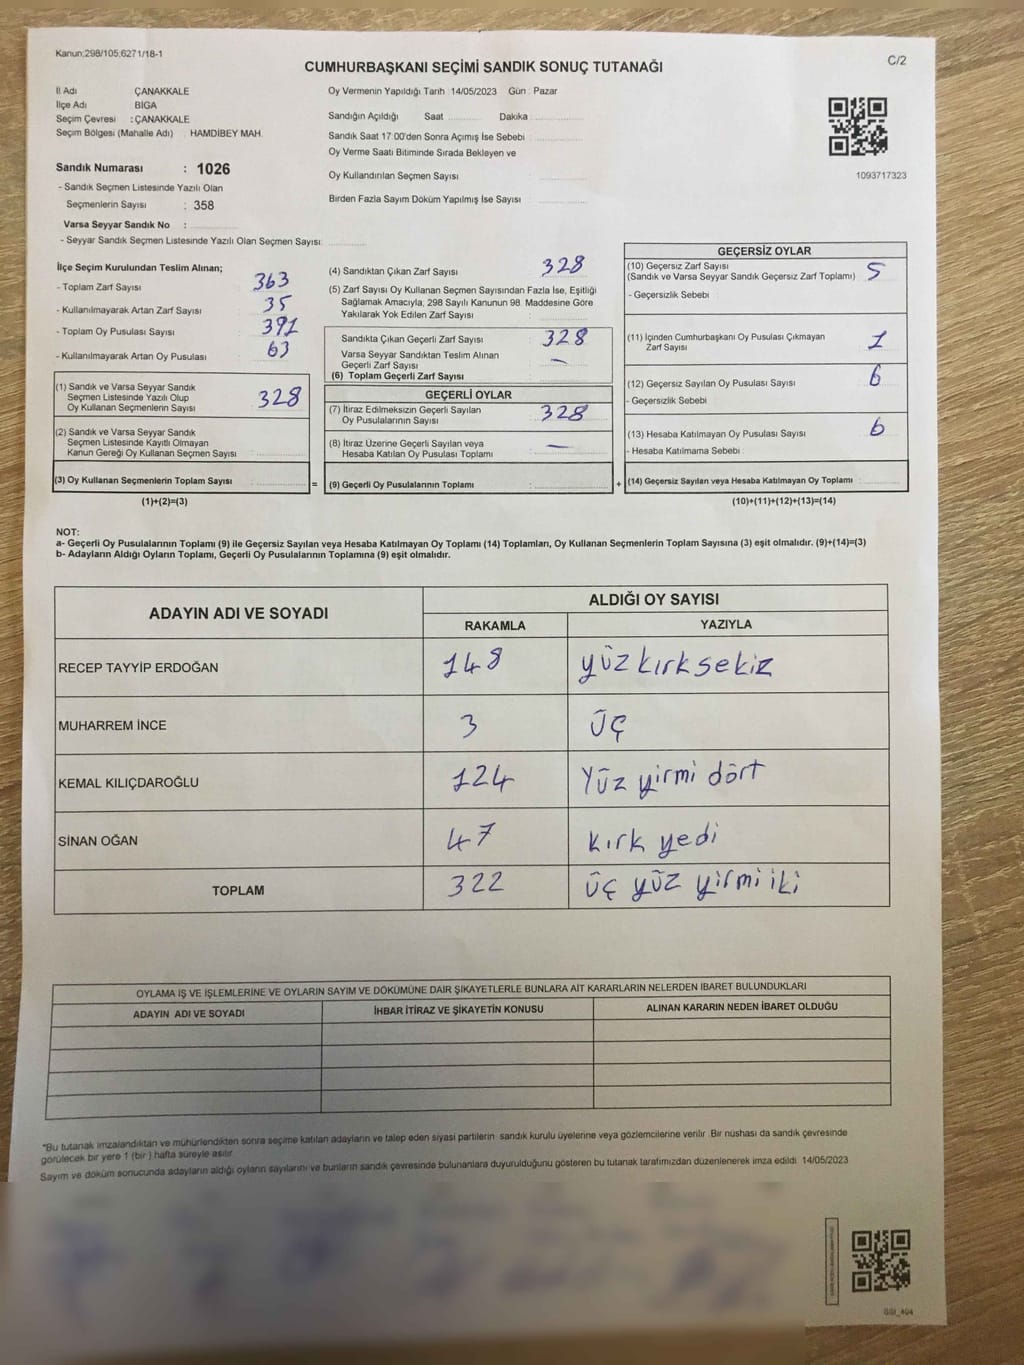 Kanun;298/105;6271/18-1
C/2
CUMHURBAŞKANI SEÇİMİ SANDIK SONUÇ TUTANAĞI
İl Adı ÇANAKKALE
İlçe Adı BİGA
Seçim Çevresi : ÇANAKKALE
Seçim Bölgesi (Mahalle Adı) : HAMDİBEY MAH.
Sandık Numarası : 1026
- Sandık Seçmen Listesinde Yazılı Olan
Seçmenlerin Sayısı : 358
Varsa Seyyar Sandık No :
- Seyyar Sandık Seçmen Listesinde Yazılı Olan Seçmen Sayısı:
Oy Vermenin Yapıldığı Tarih : 14/05/2023 Gün : Pazar
Sandığın Açıldığı Saat Dakika
Sandık Saat 17:00'den Sonra Açımış İse Sebebi :
Oy Verme Saati Bitiminde Sırada Bekleyen ve
Oy Kullandırılan Seçmen Sayısı
Birden Fazla Sayım Döküm Yapılmış İse Sayısı
1093717323
İlçe Seçim Kurulundan Teslim Alınan;
- Toplam Zarf Sayısı : 363
- Kullanılmayarak Artan Zarf Sayısı : 35
- Toplam Oy Pusulası Sayısı : 391
- Kullanılmayarak Artan Oy Pusulası : 63
(1) Sandık ve Varsa Seyyar Sandık
Seçmen Listesinde Yazılı Olup
Oy Kullanan Seçmenlerin Sayısı : 328
(2) Sandık ve Varsa Seyyar Sandık
Seçmen Listesinde Kayıtlı Olmayan
Kanun Gereği Oy Kullanan Seçmen Sayısı :
(3) Oy Kullanan Seçmenlerin Toplam Sayısı :
(1)+(2)=(3)
(4) Sandıktan Çıkan Zarf Sayısı : 328
(5) Zarf Sayısı Oy Kullanan Seçmen Sayısından Fazla İse, Eşitliği
Sağlamak Amacıyla; 298 Sayılı Kanunun 98. Maddesine Göre
Yakılarak Yok Edilen Zarf Sayısı :
Sandıkta Çıkan Geçerli Zarf Sayısı : 328
Varsa Seyyar Sandıktan Teslim Alınan
Geçerli Zarf Sayısı : —
(6) Toplam Geçerli Zarf Sayısı :
GEÇERLİ OYLAR
(7) İtiraz Edilmeksizin Geçerli Sayılan
Oy Pusulalarının Sayısı : 328
(8) İtiraz Üzerine Geçerli Sayılan veya
Hesaba Katılan Oy Pusulası Toplamı : —
= (9) Geçerli Oy Pusulalarının Toplamı :
GEÇERSİZ OYLAR
(10) Geçersiz Zarf Sayısı
(Sandık ve Varsa Seyyar Sandık Geçersiz Zarf Toplamı) : 5
- Geçersizlik Sebebi :
(11) İçinden Cumhurbaşkanı Oy Pusulası Çıkmayan
Zarf Sayısı : 1
(12) Geçersiz Sayılan Oy Pusulası Sayısı : 6
- Geçersizlik Sebebi :
(13) Hesaba Katılmayan Oy Pusulası Sayısı : 6
- Hesaba Katılmama Sebebi :
+ (14) Geçersiz Sayılan veya Hesaba Katılmayan Oy Toplamı :
(10)+(11)+(12)+(13)=(14)
NOT:
a- Geçerli Oy Pusulalarının Toplamı (9) ile Geçersiz Sayılan veya Hesaba Katılmayan Oy Toplamı (14) Toplamları, Oy Kullanan Seçmenlerin Toplam Sayısına (3) eşit olmalıdır. (9)+(14)=(3)
b- Adayların Aldığı Oyların Toplamı, Geçerli Oy Pusulalarının Toplamına (9) eşit olmalıdır.
ADAYIN ADI VE SOYADI ALDIĞI OY SAYISI
RAKAMLA YAZIYLA
RECEP TAYYİP ERDOĞAN 148 yüz kırk sekiz
MUHARREM İNCE 3 üç
KEMAL KILIÇDAROĞLU 124 Yüz yirmi dört
SİNAN OĞAN 47 kırk yedi
TOPLAM 322 üç yüz yirmi iki
OYLAMA İŞ VE İŞLEMLERİNE VE OYLARIN SAYIM VE DÖKÜMÜNE DAİR ŞİKAYETLERLE BUNLARA AİT KARARLARIN NELERDEN İBARET BULUNDUKLARI
ADAYIN ADI VE SOYADI İHBAR İTİRAZ VE ŞİKAYETİN KONUSU ALINAN KARARIN NEDEN İBARET OLDUĞU
*Bu tutanak imzalandıktan ve mühürlendikten sonra seçime katılan adayların ve talep eden siyasi partilerin sandık kurulu üyelerine veya gözlemcilerine verilir. Bir nüshası da sandık çevresinde
görülecek bir yere 1 (bir ) hafta süreyle asılır.
Sayım ve döküm sonucunda adayların aldığı oyların sayılarını ve bunların sandık çevresinde bulunanlara duyurulduğunu gösteren bu tutanak tarafımızdan düzenlenerek imza edildi. 14/05/2023